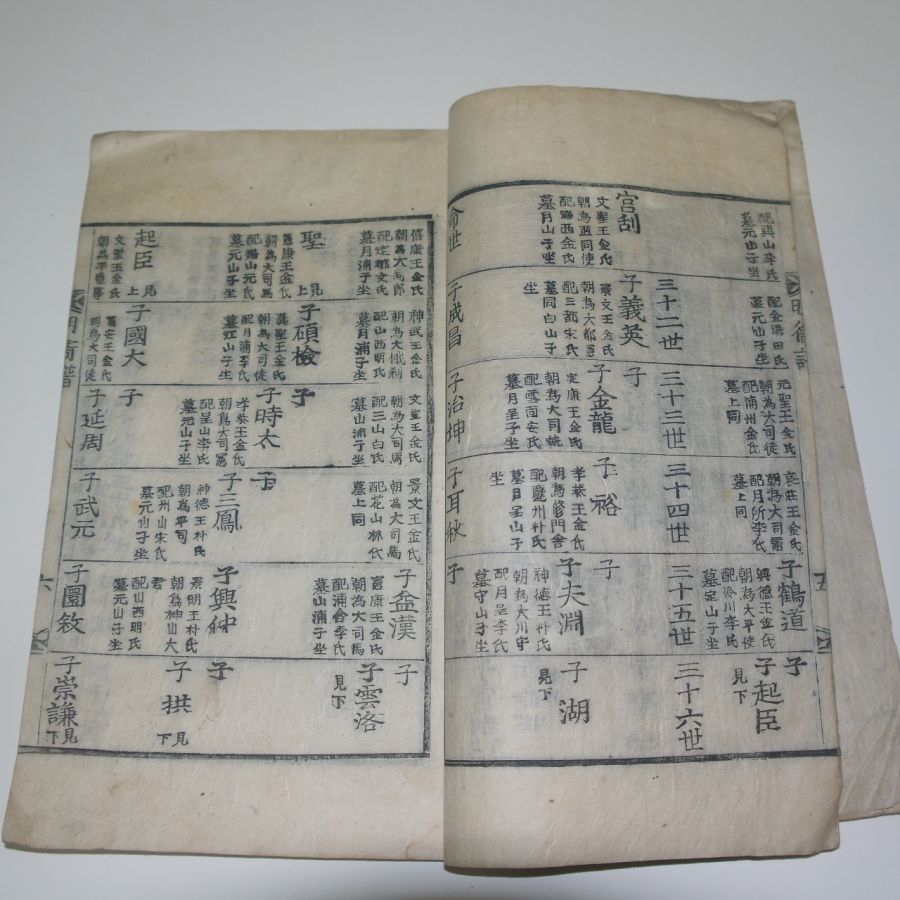 配興山李氏
墓元山子坐
宮刮
文聖王金氏
朝為監同使
配海西金氏
墓月山子坐
墓元山子坐
三十二世
子義英
景文王金氏
朝為大都憲
配三都宋氏
墓同白山子坐
子成昌
元聖王金氏
朝為大司徒
配浦州金氏
墓上同
三十三世
子
子金龍
定康王金氏
朝為大司
配雪南安氏
墓月呈子坐
子治坤
哀莊王金氏
朝為大司憲
配月所李氏
墓上同
三十四世
子
裕
孝恭王金氏
朝為修門舍
配慶州朴氏
墓月呈山子
坐
子耳秋
子鶴道
興德王金氏
朝為大平使
配冷川李氏
墓定山子坐
三十五世
子
子夫淵
神德王朴氏
朝為大川守
配月呈李氏
墓守山子坐
子
子
子起臣
見下
三十六世
子湖
見下
五
僖康王金氏
朝為大馬郎
配定都文氏
墓月浦子坐
聖
見上
憲康王金氏
朝為大司馬
配陽山元氏
墓元山子坐
起臣
見上
文聖王金氏
朝為平章事
神武王金氏
配山西明氏
墓月浦子坐
子碩檢
真聖王金氏
朝為大司徒
配月浦李氏
墓江山子坐
子國大
憲安王金氏
朝為大司徒
文聖王金氏
朝為大司馬
配三山白氏
墓山浦子坐
子
子時太
孝恭王金氏
朝為大司憲
配呈山李氏
墓元山子坐
子
子延周
景文王金氏
朝為大司馬
配花山林氏
墓上同
子
子三鳳
神德王朴氏
朝為平司
配州山宋氏
墓元山子坐
子武元
子益漢
憲康王金氏
朝為大司馬
配浦舍李氏
墓山浦子坐
子興仲
景明王朴氏
朝為神山大
君
配山西明氏
墓元山子坐
子圜敘
子
子雲洛
見下
子
子拱
見下
子崇謙
見下
六